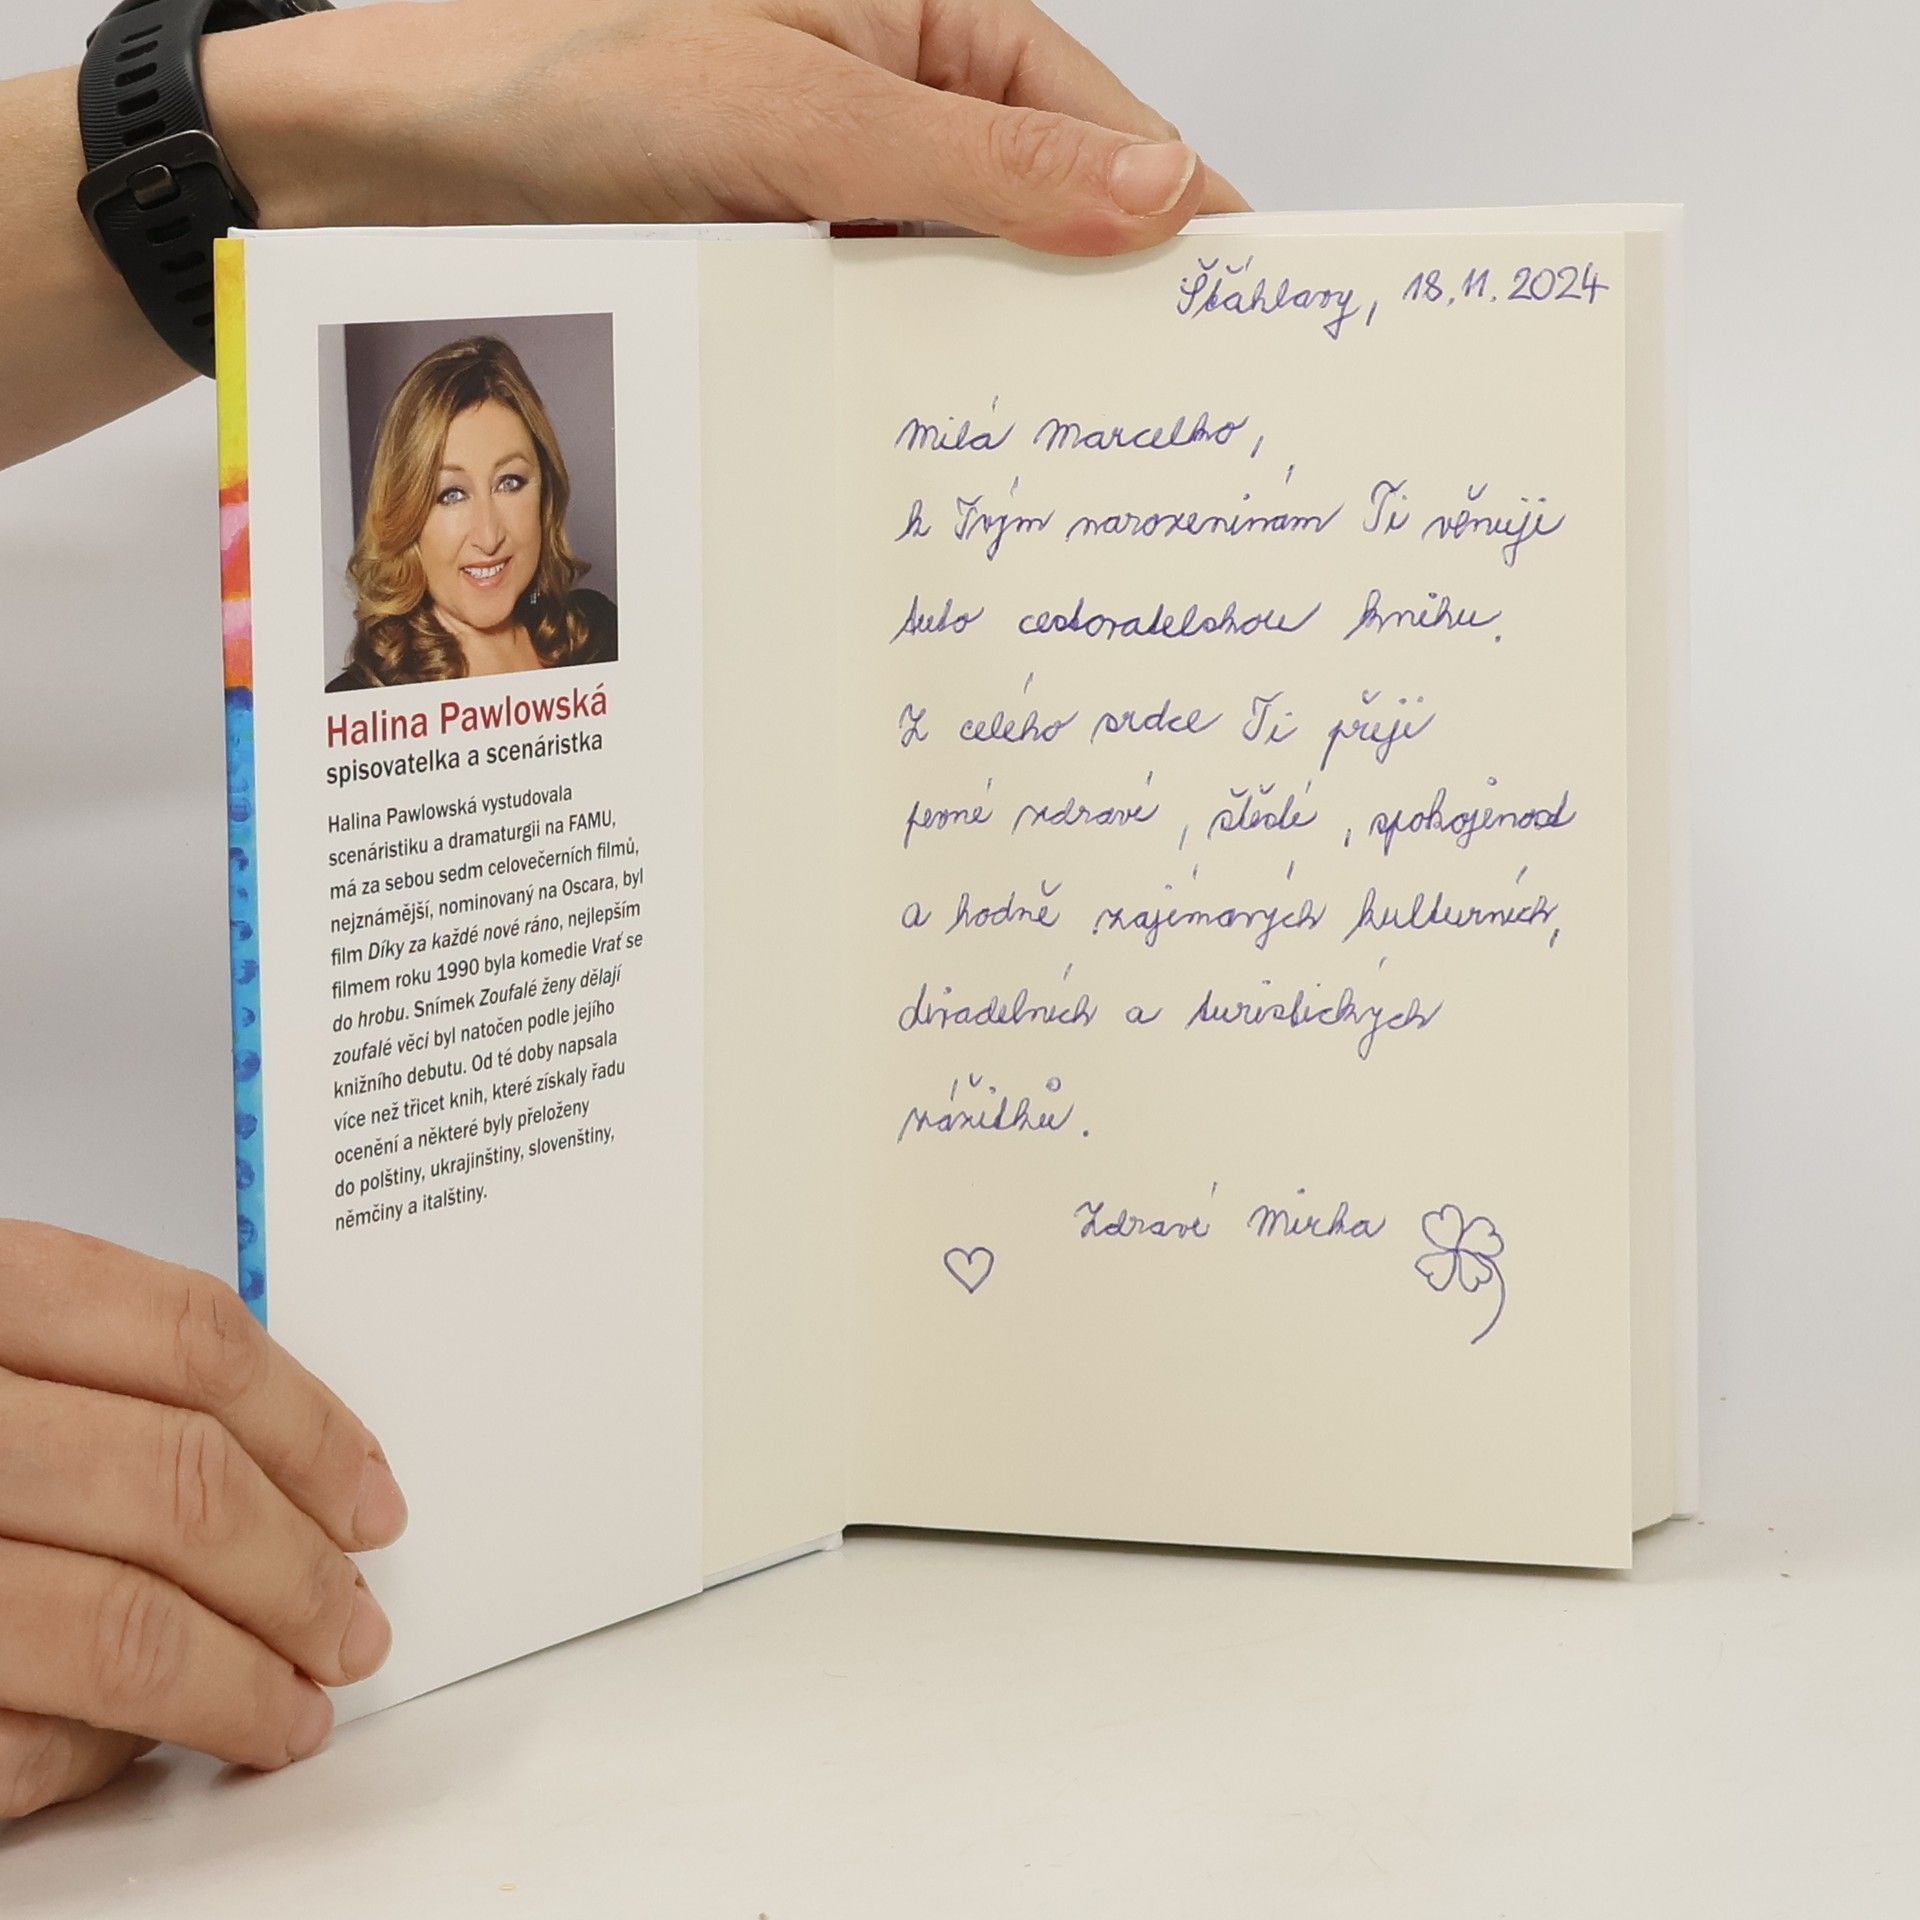 Halina Pawlowská
spisovatelka a scenáristka
Halina Pawlowská vystudovala
scenáristiku a dramaturgii na FAMU,
má za sebou sedm celovečerních filmů,
nejznámější, nominovaný na Oscara, byl
film Díky za každé nové ráno, nejlepším
filmem roku 1990 byla komedie Vrať se
do hrobu. Snímek Zoufalé ženy dělají
zoufalé věci byl natočen podle jejího
knižního debutu. Od té doby napsala
více než třicet knih, které získaly řadu
ocenění a některé byly přeloženy
do polštiny, ukrajinštiny, slovenštiny,
němčiny a italštiny.
Šťáhlavy, 18.11.2024
Milá Marcelko,
k Tvým narozeninám Ti věnuji
tuto cestovatelskou knihu.
Z celého srdce Ti přeji
pevné zdraví, štěstí, spokojenost
a hodně zajímavých kulturních,
divadelních a turistických
zážitků.
Zdraví Mirka